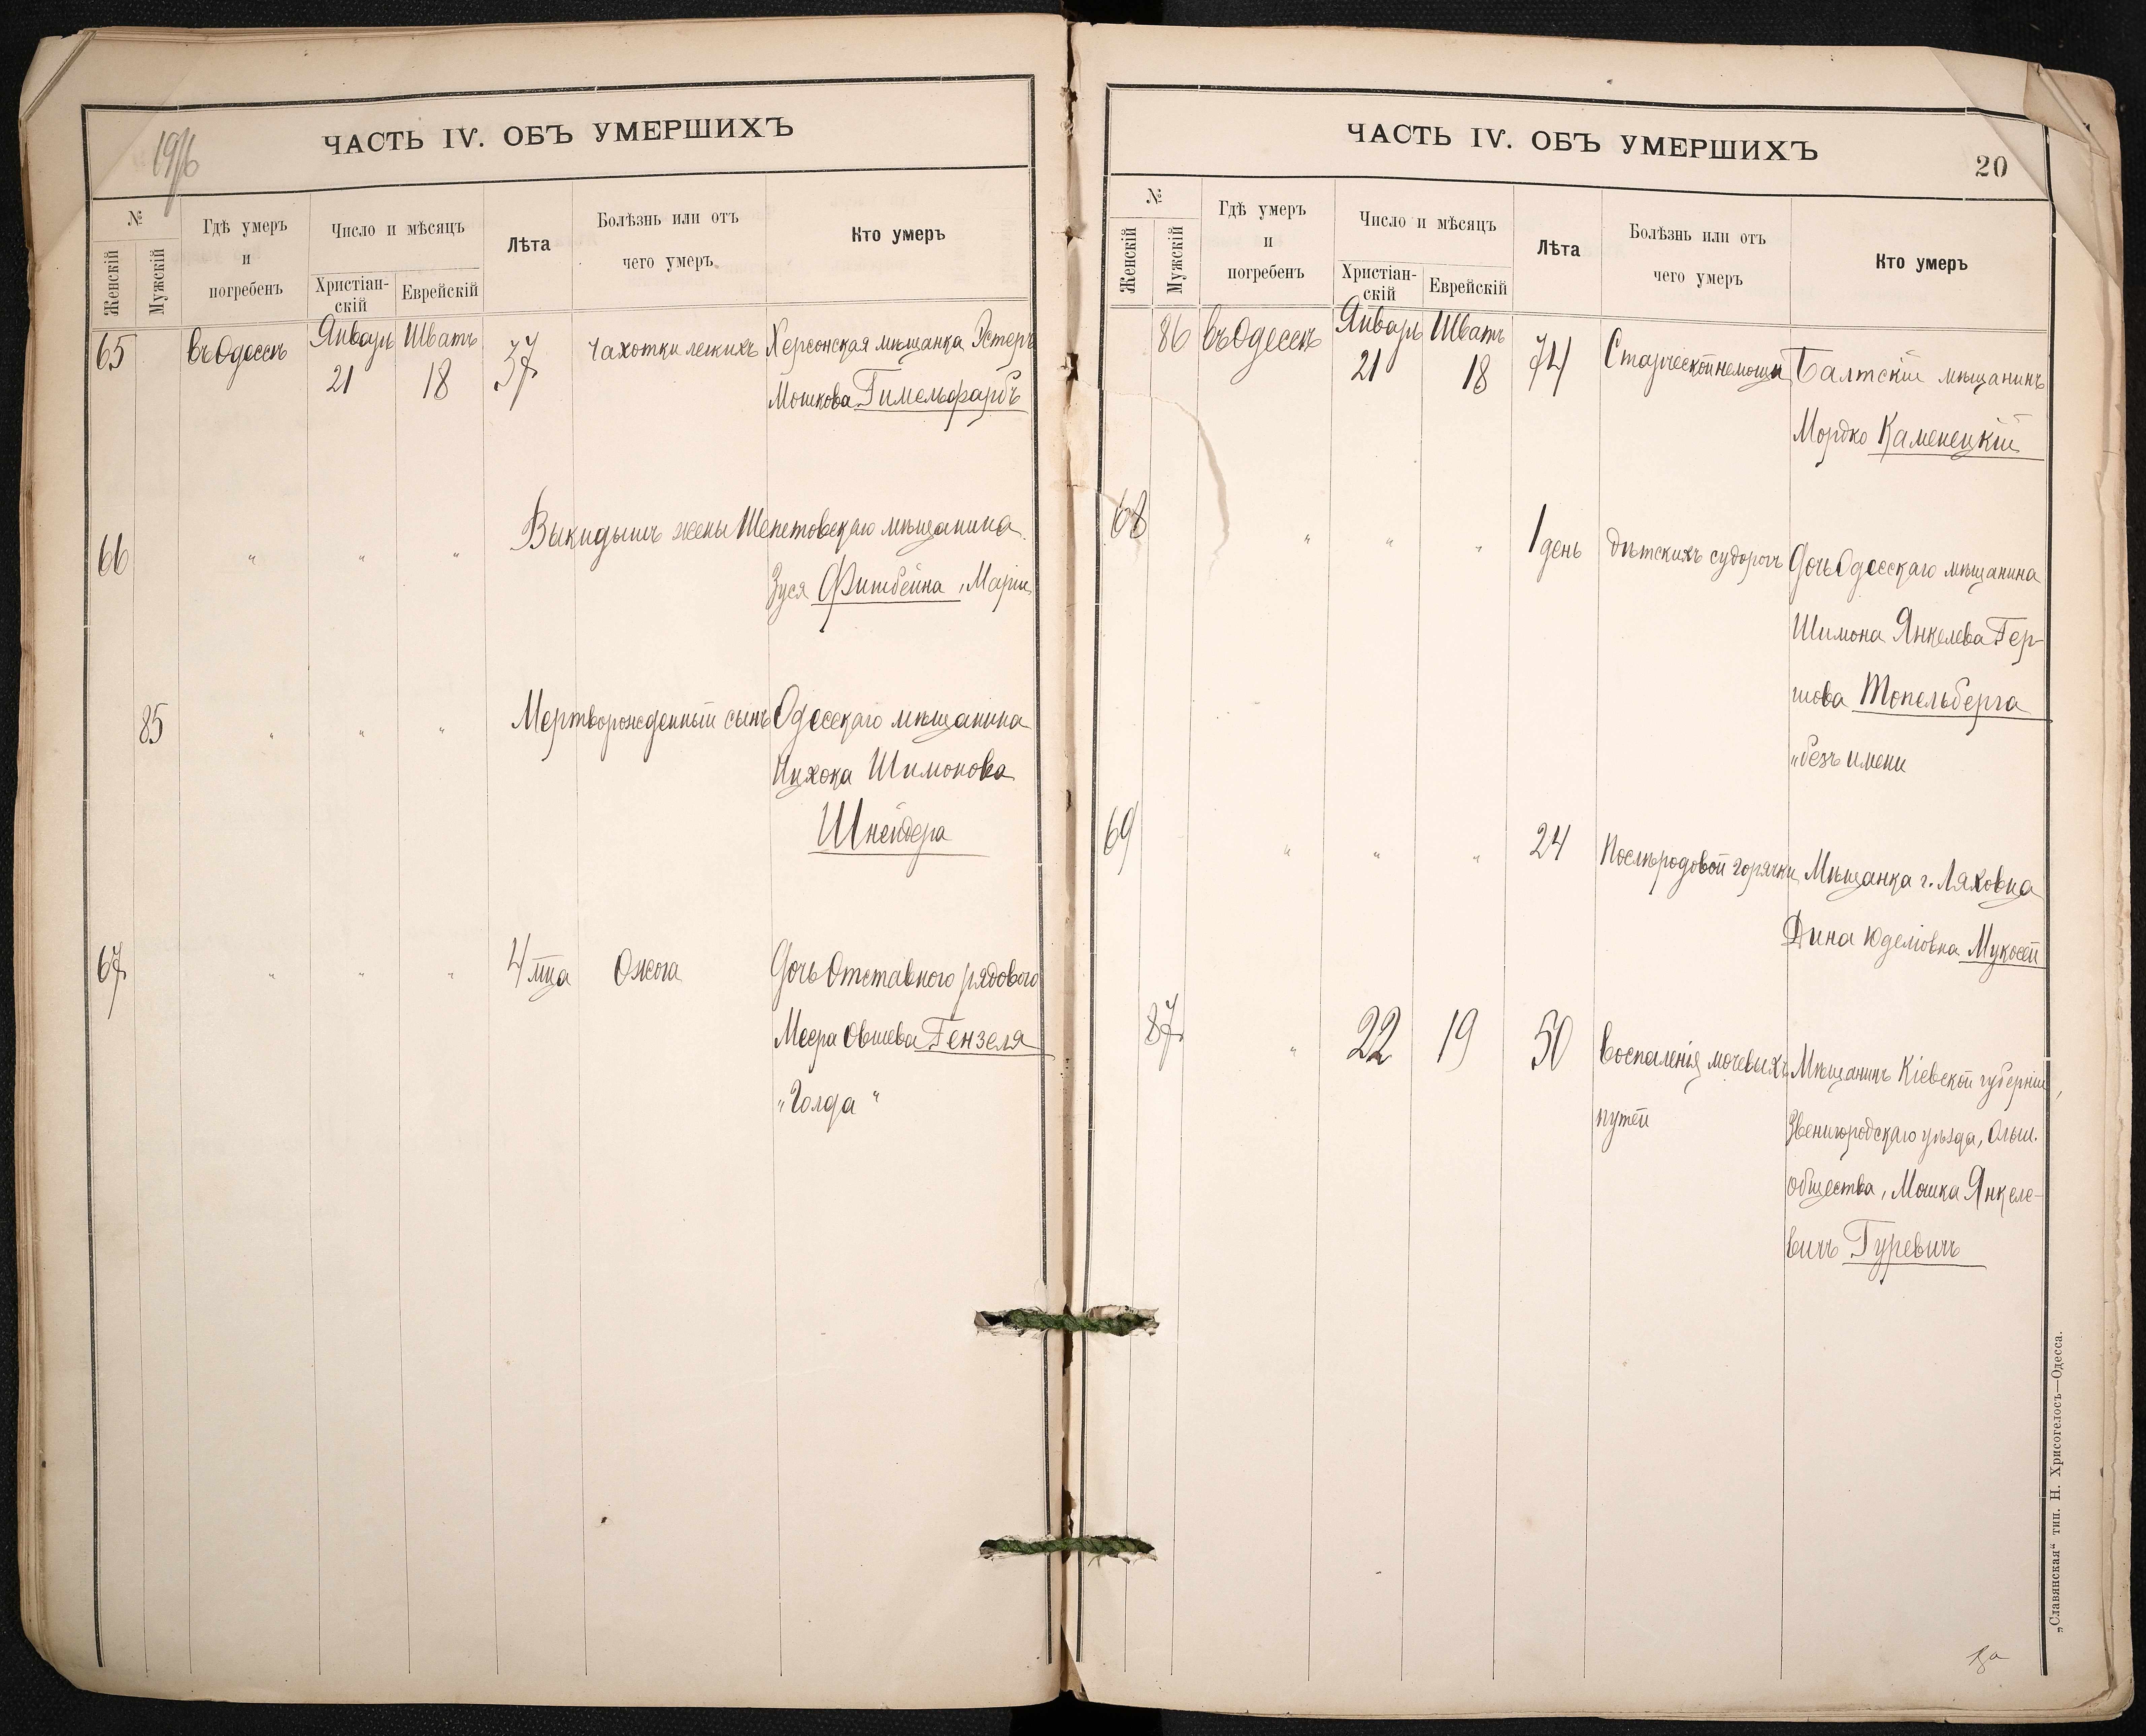 1916
ЧАСТЬ IV. ОБЪ УМЕРШИХЪ
№
Женскій
Мужскій
Гдѣ умеръ
и
погребенъ
Число и мѣсяцъ
Христіан-
скій
Еврейскій
Лѣта
Болѣзнь или отъ
чего умеръ
Кто умеръ
65 въ Одессѣ Январь Шватъ 37 чахотки легкихъ Херсонская мѣщанка Эстеръ
21 18 37 Мошкова Гимельфарбъ
66 " " " Выкидышъ жены Шепетовскаго мѣщанина
Зуся Фитбейна, Маріи
85 " " " Мертворожденный сынъ Одесскаго мѣщанина
Ицхока Шимонова
Шнейдера
67 " " " 4 мца Ожога Дочь Отставного рядового
Меера Овшева Гензеля
"Голда"
ЧАСТЬ IV. ОБЪ УМЕРШИХЪ
20
№
Женскій
Мужскій
Гдѣ умеръ
и
погребенъ
Число и мѣсяцъ
Христіан-
скій
Еврейскій
Лѣта
Болѣзнь или отъ
чего умеръ
Кто умеръ
86 въ Одессѣ Январь Шватъ 74 Старческой немощи Балтскій мѣщанинъ
21 18
Мордко Каменецкій
68 " " " 1 день дѣтскихъ судорогъ Дочь Одесскаго мѣщанина
Шимона Янкелева Гер-
шова Топельберга
"безъ имени
69 " " " 24 Послѣродовой горячки Мѣщанка г. Ляховца
Дина Юделіовна Мукосей
87 " 22 19 50 Воспаленія мочевыхъ Мѣщанинъ Кіевской губерніи,
путей Звенигородскаго уѣзда, Ольш.
общества, Мошка Янкеле-
вичъ Гуревичъ
„Славянская“ тип. Н. Хрисогелосъ—Одесса.